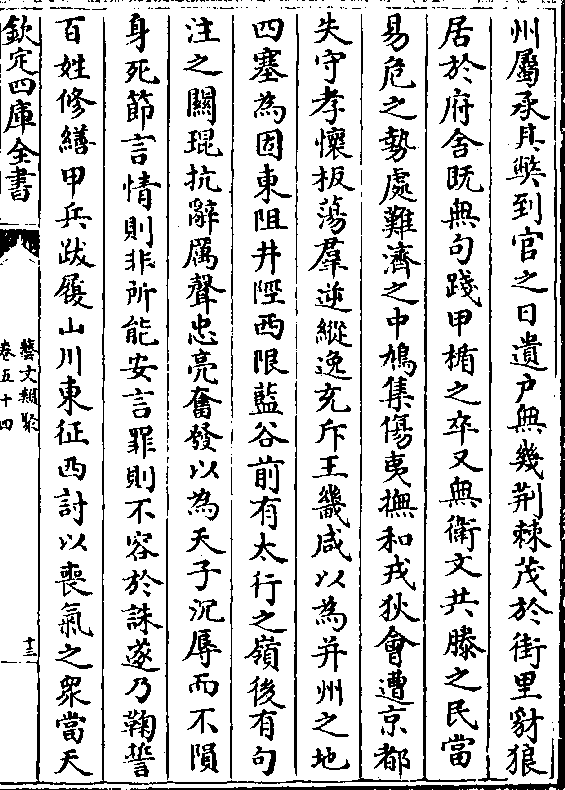 州屬承其獘到官之日遺户無幾荆棘茂於街里豺狼
居於府舍既無句踐甲楯之卒又無衛文共滕之民當
易危之勢處難濟之中鳩集傷夷撫和戎狄會遭京都
失守孝懷板蕩羣逆縱逸充斥王畿咸以為并州之地
四塞為固東阻井陘西限藍谷前有太行之嶺後有句
注之關琨抗辭厲聲忠亮奮發以為天子沉辱而不隕
身死節言情則非所能安言罪則不容於誅遂乃鞠誓
百姓修繕甲兵跋履山川東征西討以喪氣之衆當天
欽定四庫全書
藝文類聚
卷五十四
十三